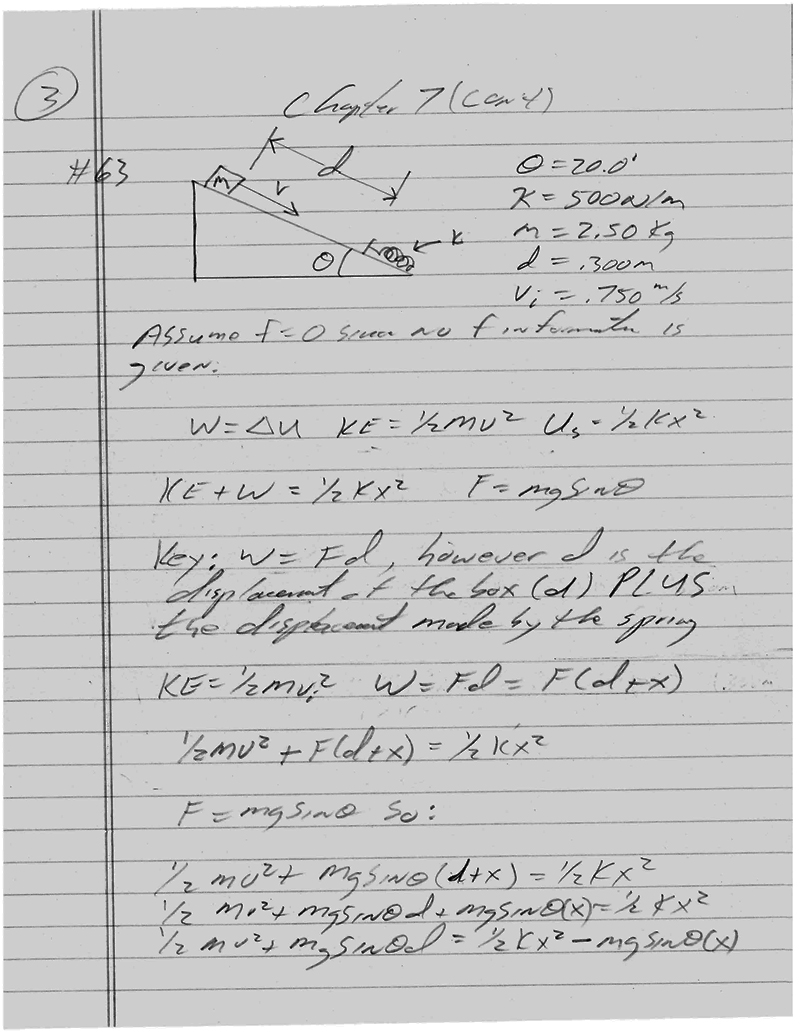 3
Chapter 7 (con't)
#63
m
v
d
K
θ
θ = 20.0°
K = 500 N/m
m = 2.50 Kg
d = .300m
Vi = .750 m/s
Assume f = 0 since no f information is
given.
W = ΔU KE = ½mv² Us = ½Kx²
KE + W = ½Kx² F = mg sinθ
Key: W = Fd, however d is the
displacement of the box (d) PLUS
the displacement made by the spring
KE = ½mvi² W = Fd = F(d+x)
½mv² + F(d+x) = ½Kx²
F = mg sinθ So:
½ mv² + mg sinθ(d+x) = ½Kx²
½ mv² + mg sinθd + mg sinθ(x) = ½Kx²
½ mv² + mg sinθd = ½Kx² – mg sinθ(x)